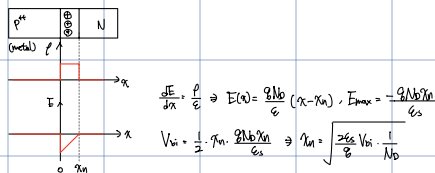 P⁺⁺ ⊕ ⊕ ⊕ N
(metal) ρ
x
E
x
0 xn
dE/dx = ρ/ε ⇒ E(x) = qND/ε (x-xn), Emax = -qNDxn/εs
Vbi = 1/2 · xn · qNDxn/εs ⇒ xn = √(2εs/q Vbi · 1/ND)